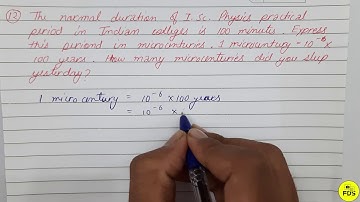 (12) The normal duration of I.Sc. Physics practical
period in Indian colleges is 100 minutes. Express
this period in microcenturies. 1 microcentury = 10⁻⁶ x
100 years. How many microcenturies did you sleep
yesterday?
1 micro century = 10⁻⁶ x 100 years
= 10⁻⁶ x
FDS